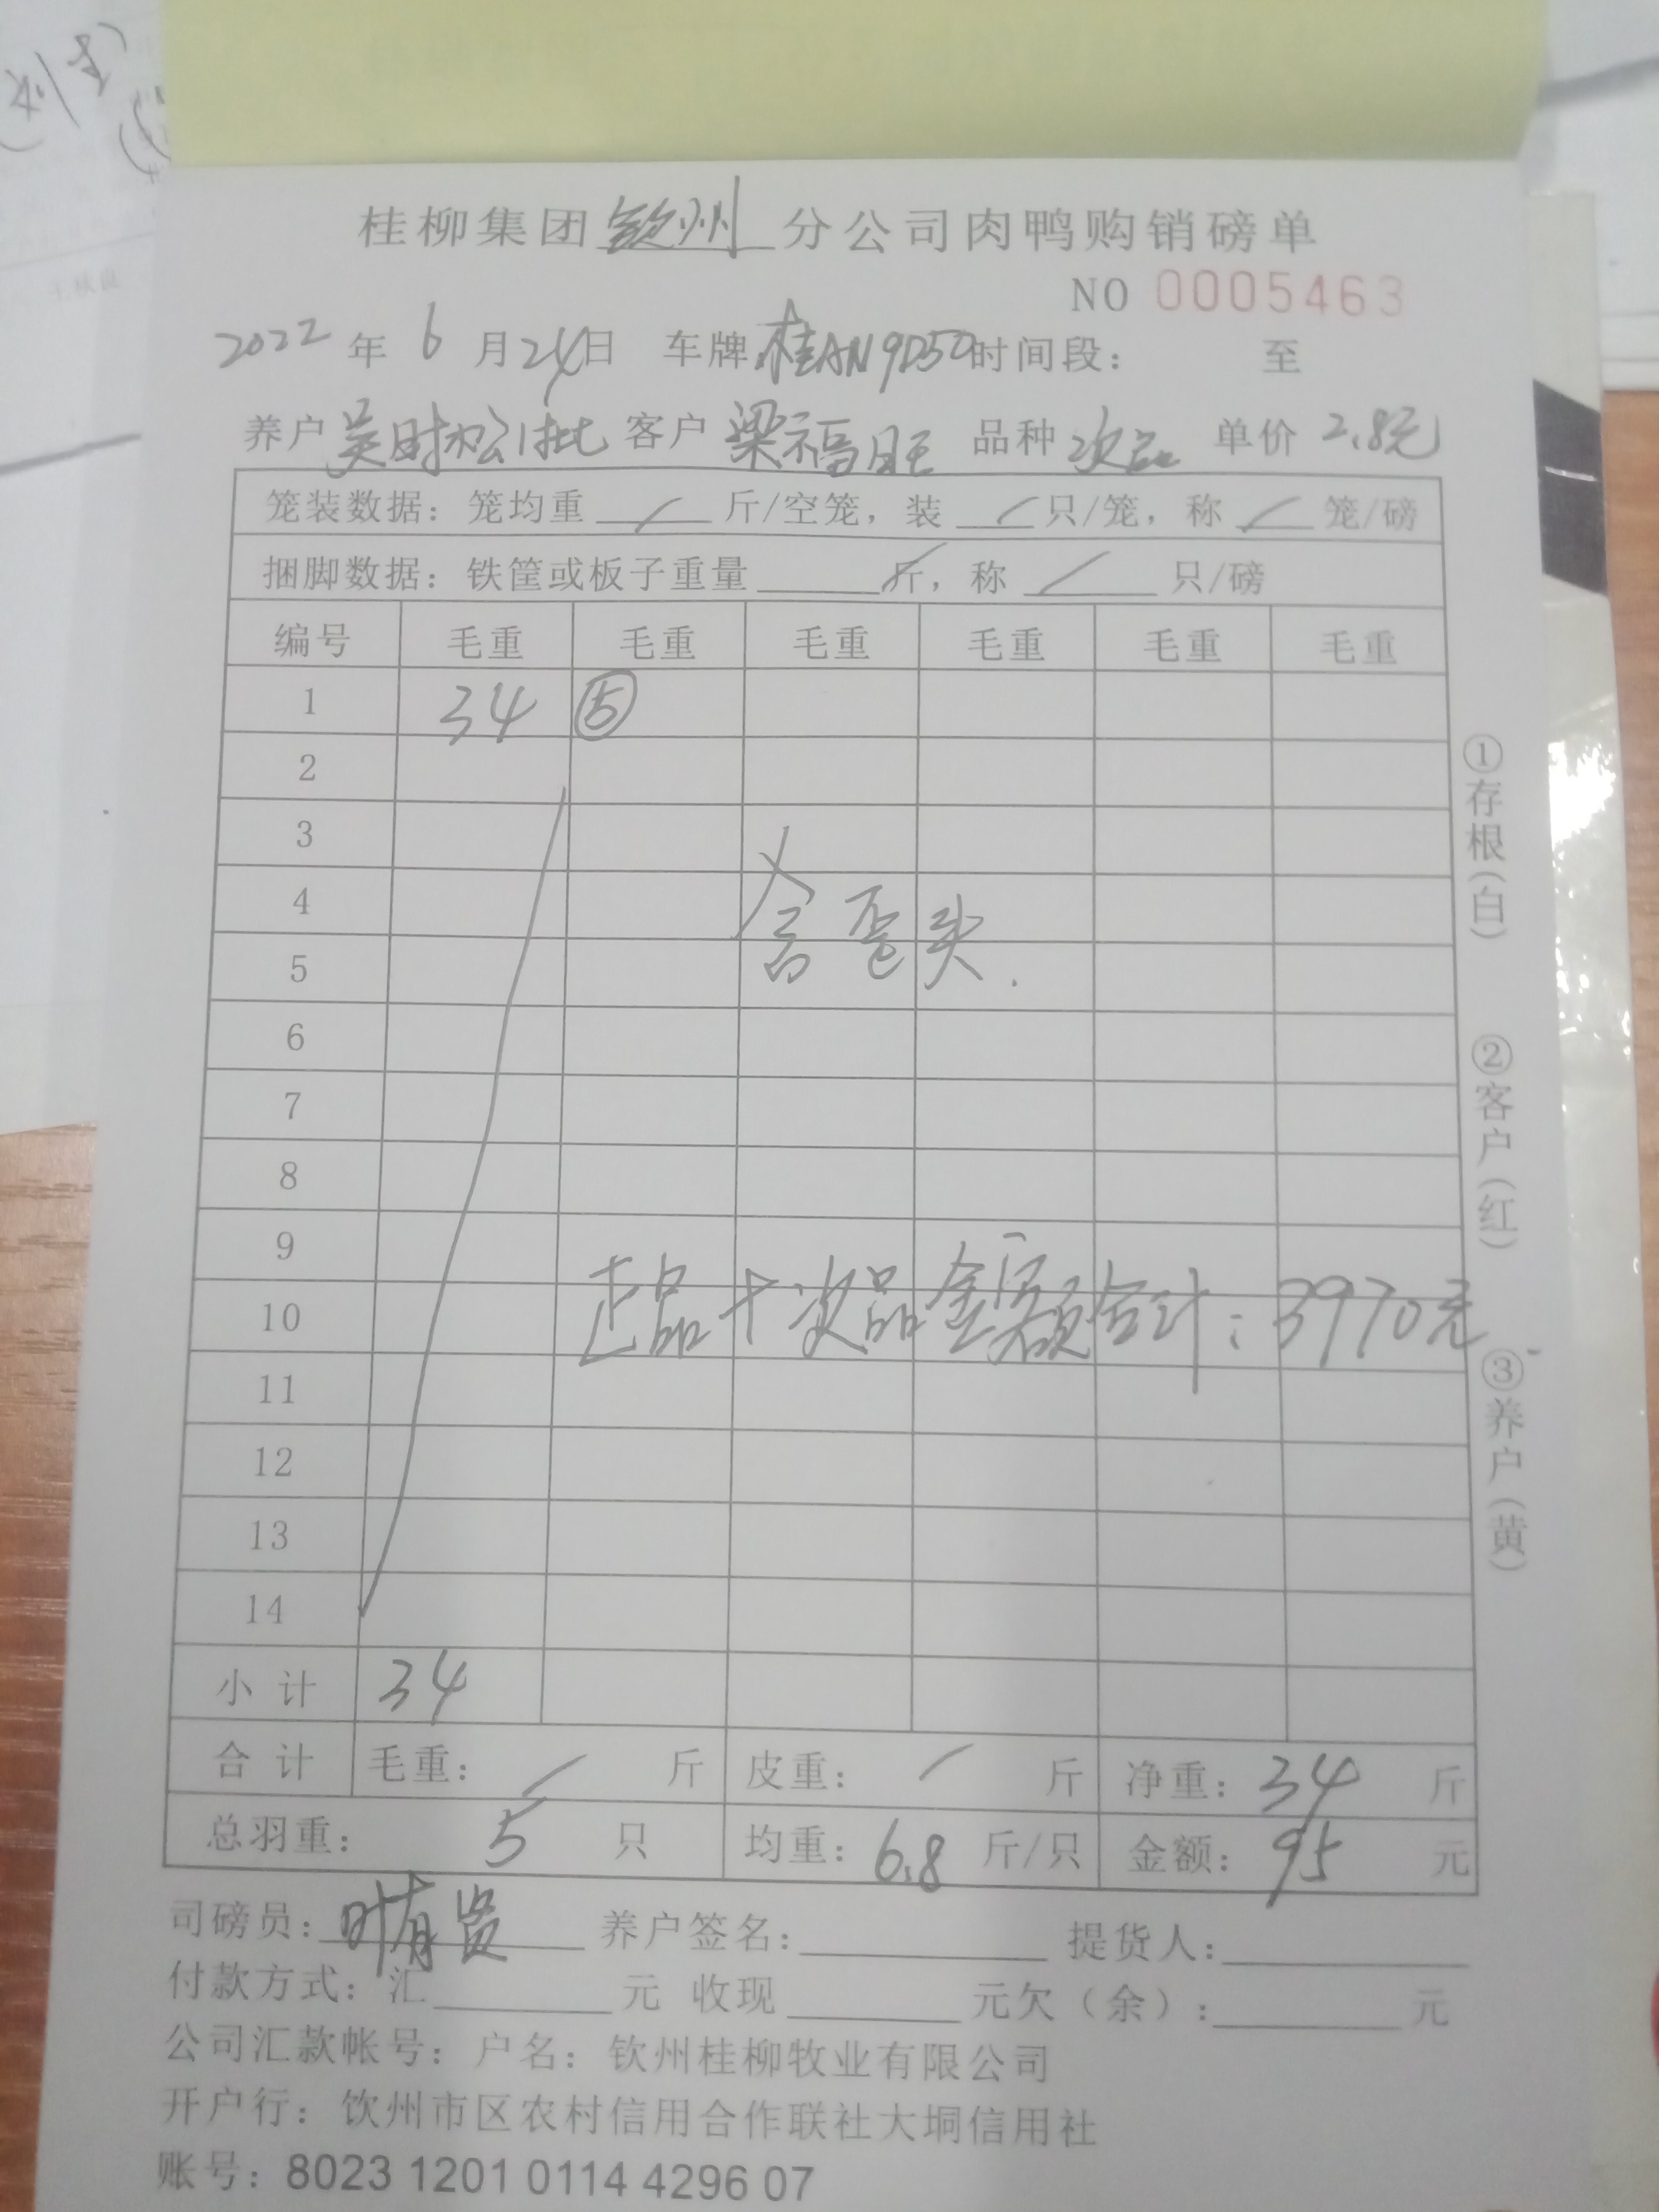 桂柳集团钦州分公司肉鸭购销磅单
NO 0005463
2022年6月24日 车牌:桂AN9D50时间段: 至
养户 吴时松1批 客户 梁福旺 品种 次品 单价 2.8元
笼装数据: 笼均重 / 斤/空笼, 装 / 只/笼, 称 / 笼/磅
捆脚数据: 铁筐或板子重量 / 斤, 称 / 只/磅
编号 毛重 毛重 毛重 毛重 毛重 毛重
1 34 ⑤
2
3
4
含歪头.
5
6
7
8
9
10 正品+次品金额合计:3970元
11
12
13
14
小计 34
合计 毛重: / 斤 皮重: / 斤 净重: 34 斤
总羽重: 5 只 均重: 6.8 斤/只 金额: 95 元
司磅员: 养户签名: 提货人:
付款方式: 汇 元 收现 元欠(余): 元
公司汇款帐号: 户名: 钦州桂柳牧业有限公司
开户行: 饮州市区农村信用合作联社大垌信用社
账号: 8023 1201 0114 4296 07
①存根(白)
②客户(红)
③养户(黄)